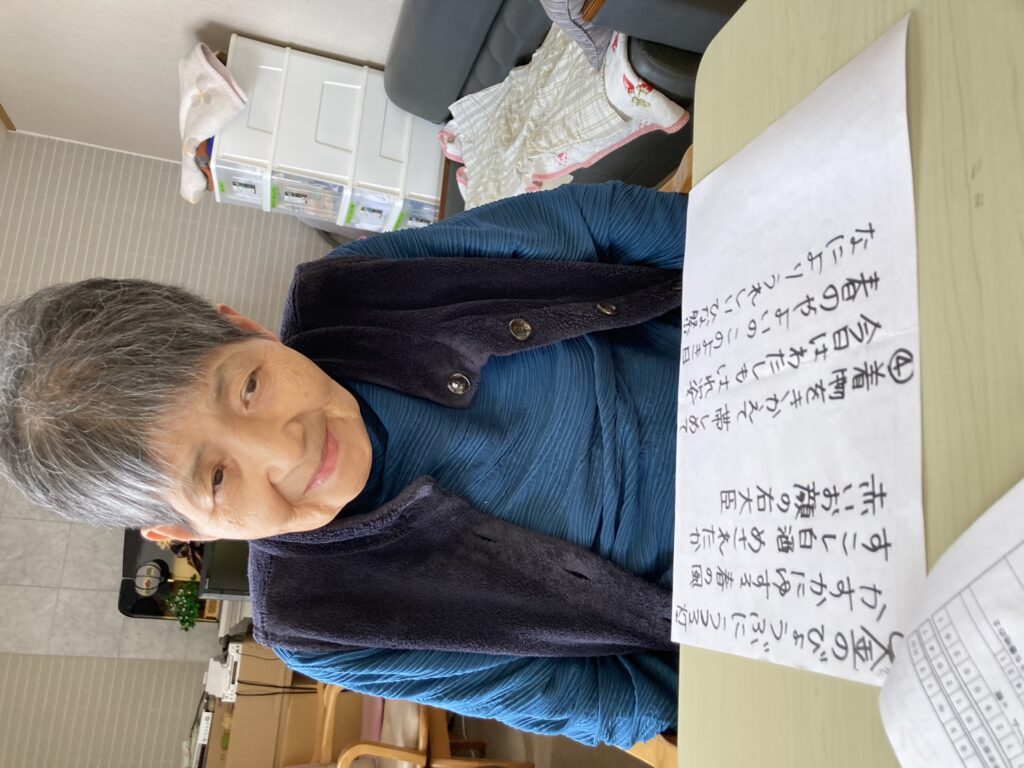 金のびょうぶにうつる灯
かすかにゆする春の風
すこし白酒めされたか
赤いお顔の右大臣
④着物をきかえて帯しめて
今日はわたしもはれ姿
春のやよいのこのよき日
なによりうれしいひな祭